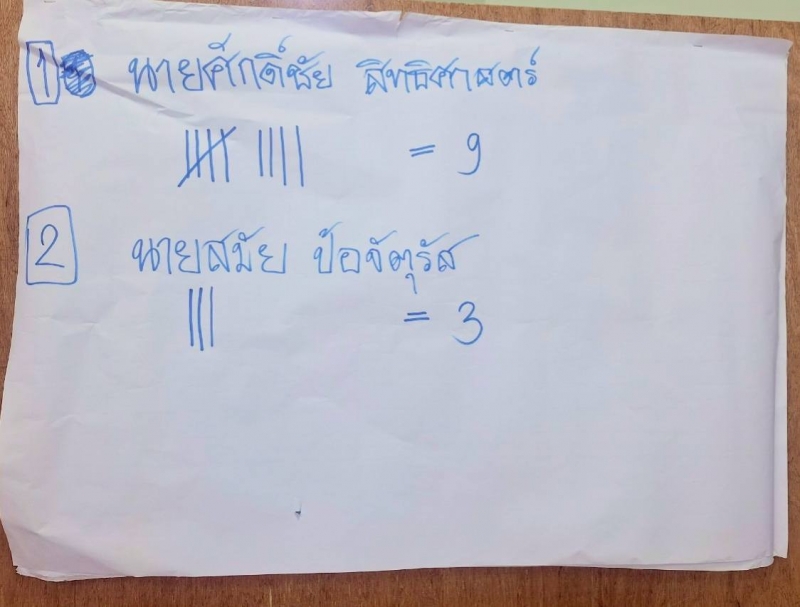 1 นายศักดิ์ชัย สิทธิศาสตร์
= 9
2 นายสมัย ป้อจัตุรัส
= 3